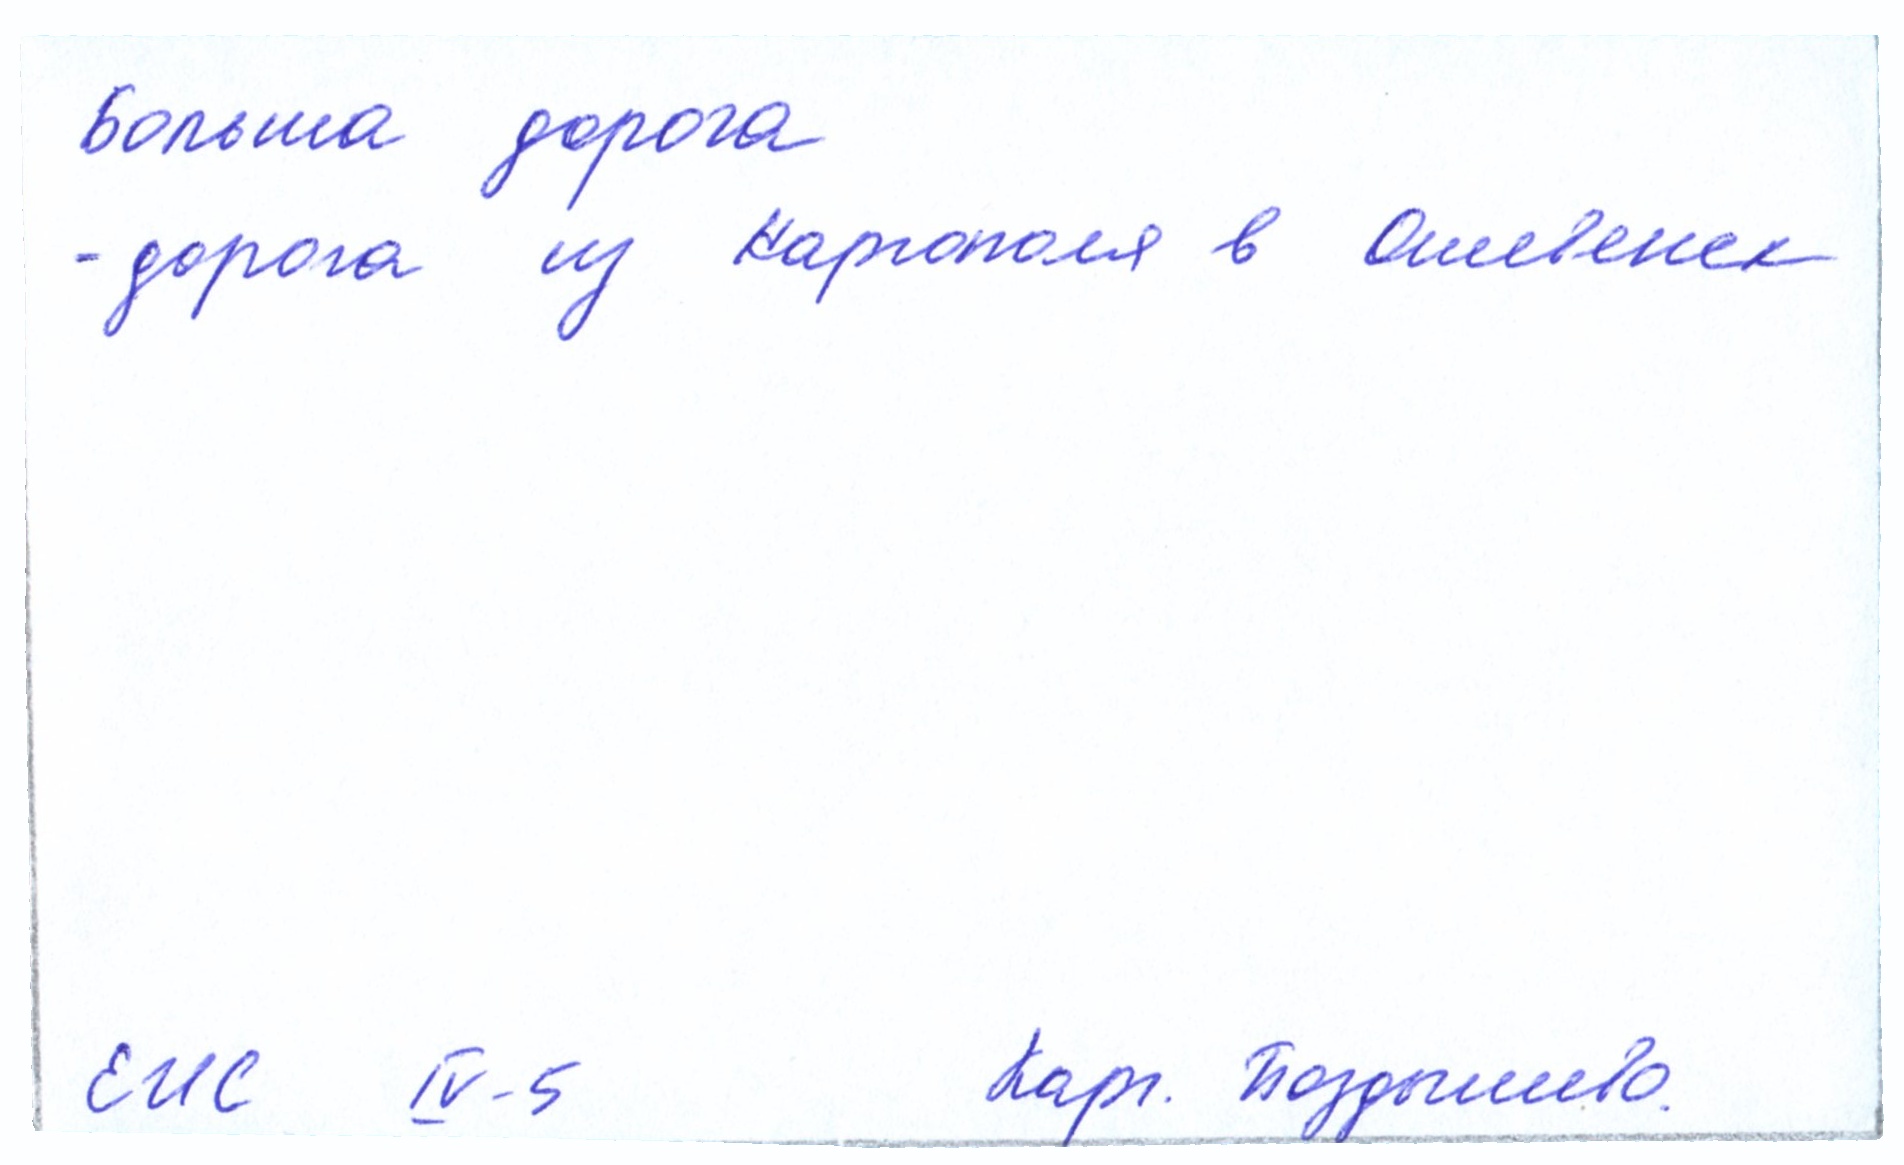 Больша дорога
- дорога из Каргополя в Ошевенск
ЕИС IV-5 Карг. Поздышево.